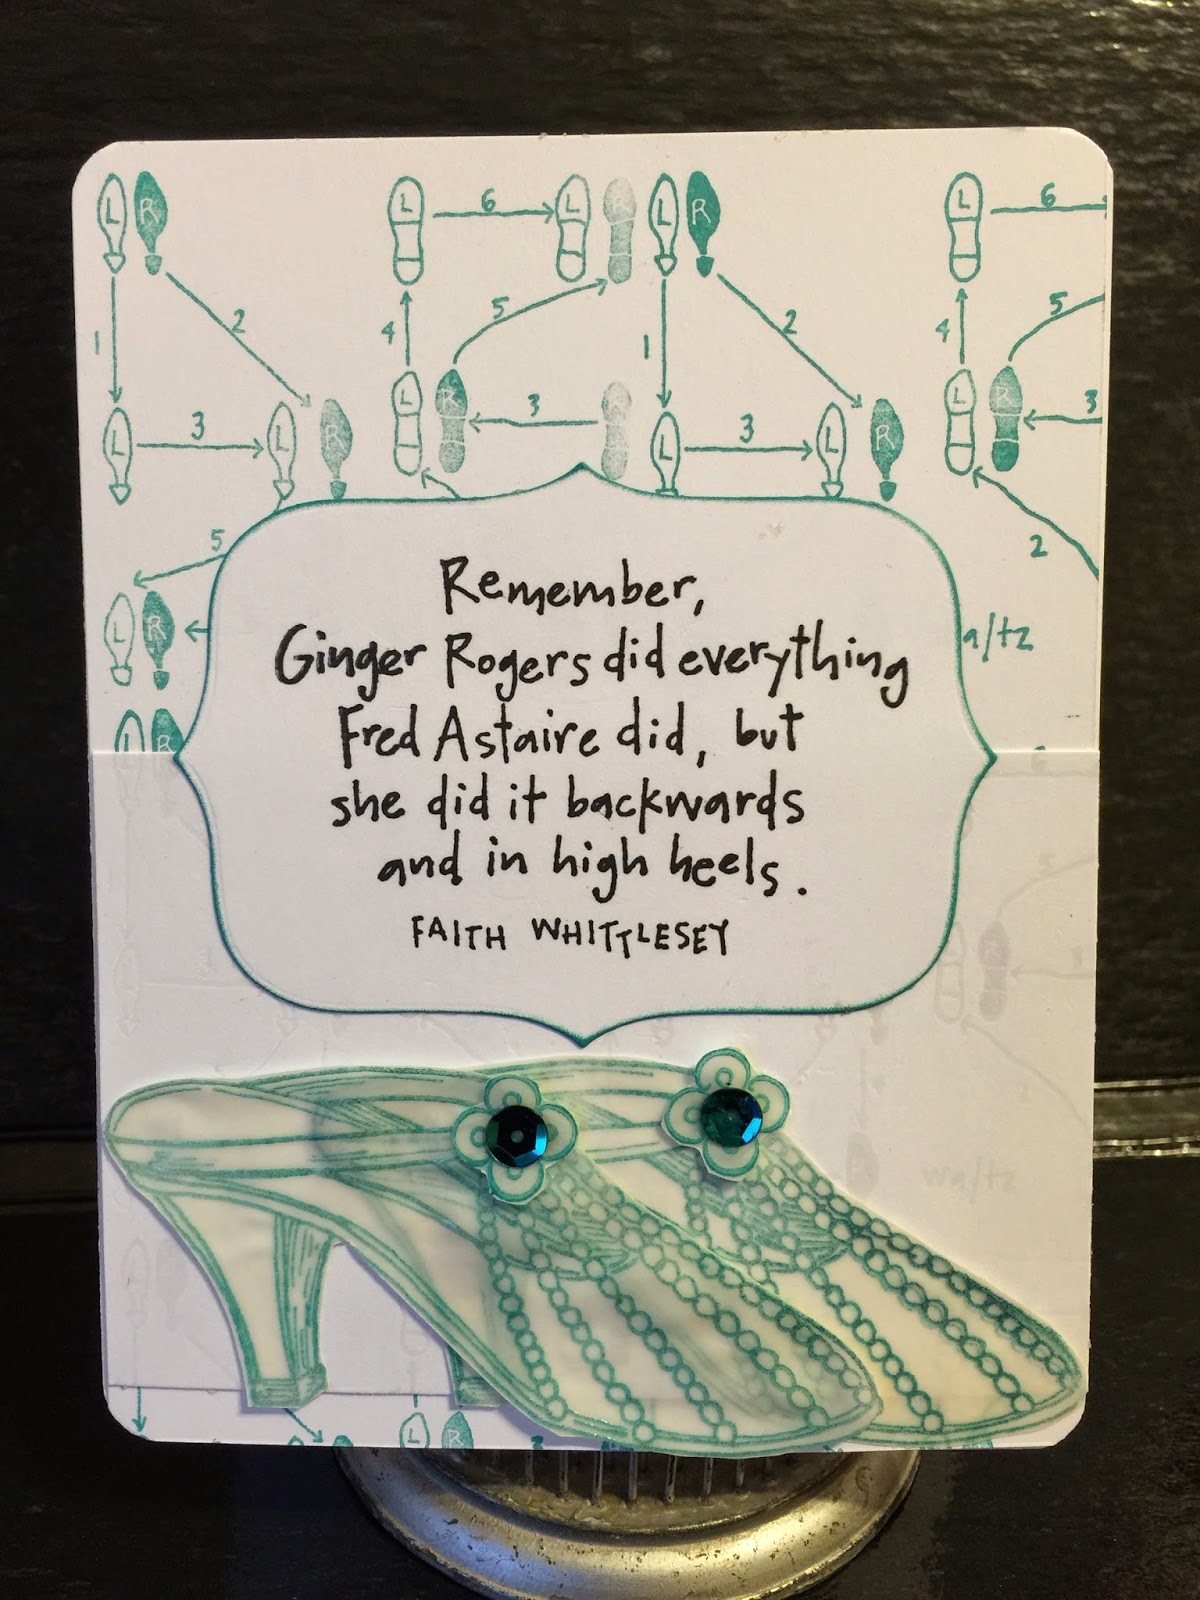 L R L 6 L R L R L 6
1 2 4 5 1 2 4 5
L 3 L R L R 3 L 3 L R L R 3
5 2
L R
Remember,
Ginger Rogers did everything
Fred Astaire did, but
she did it backwards
and in high heels.
FAITH WHITTLESEY
a/tz
L R
waltz
L R
3